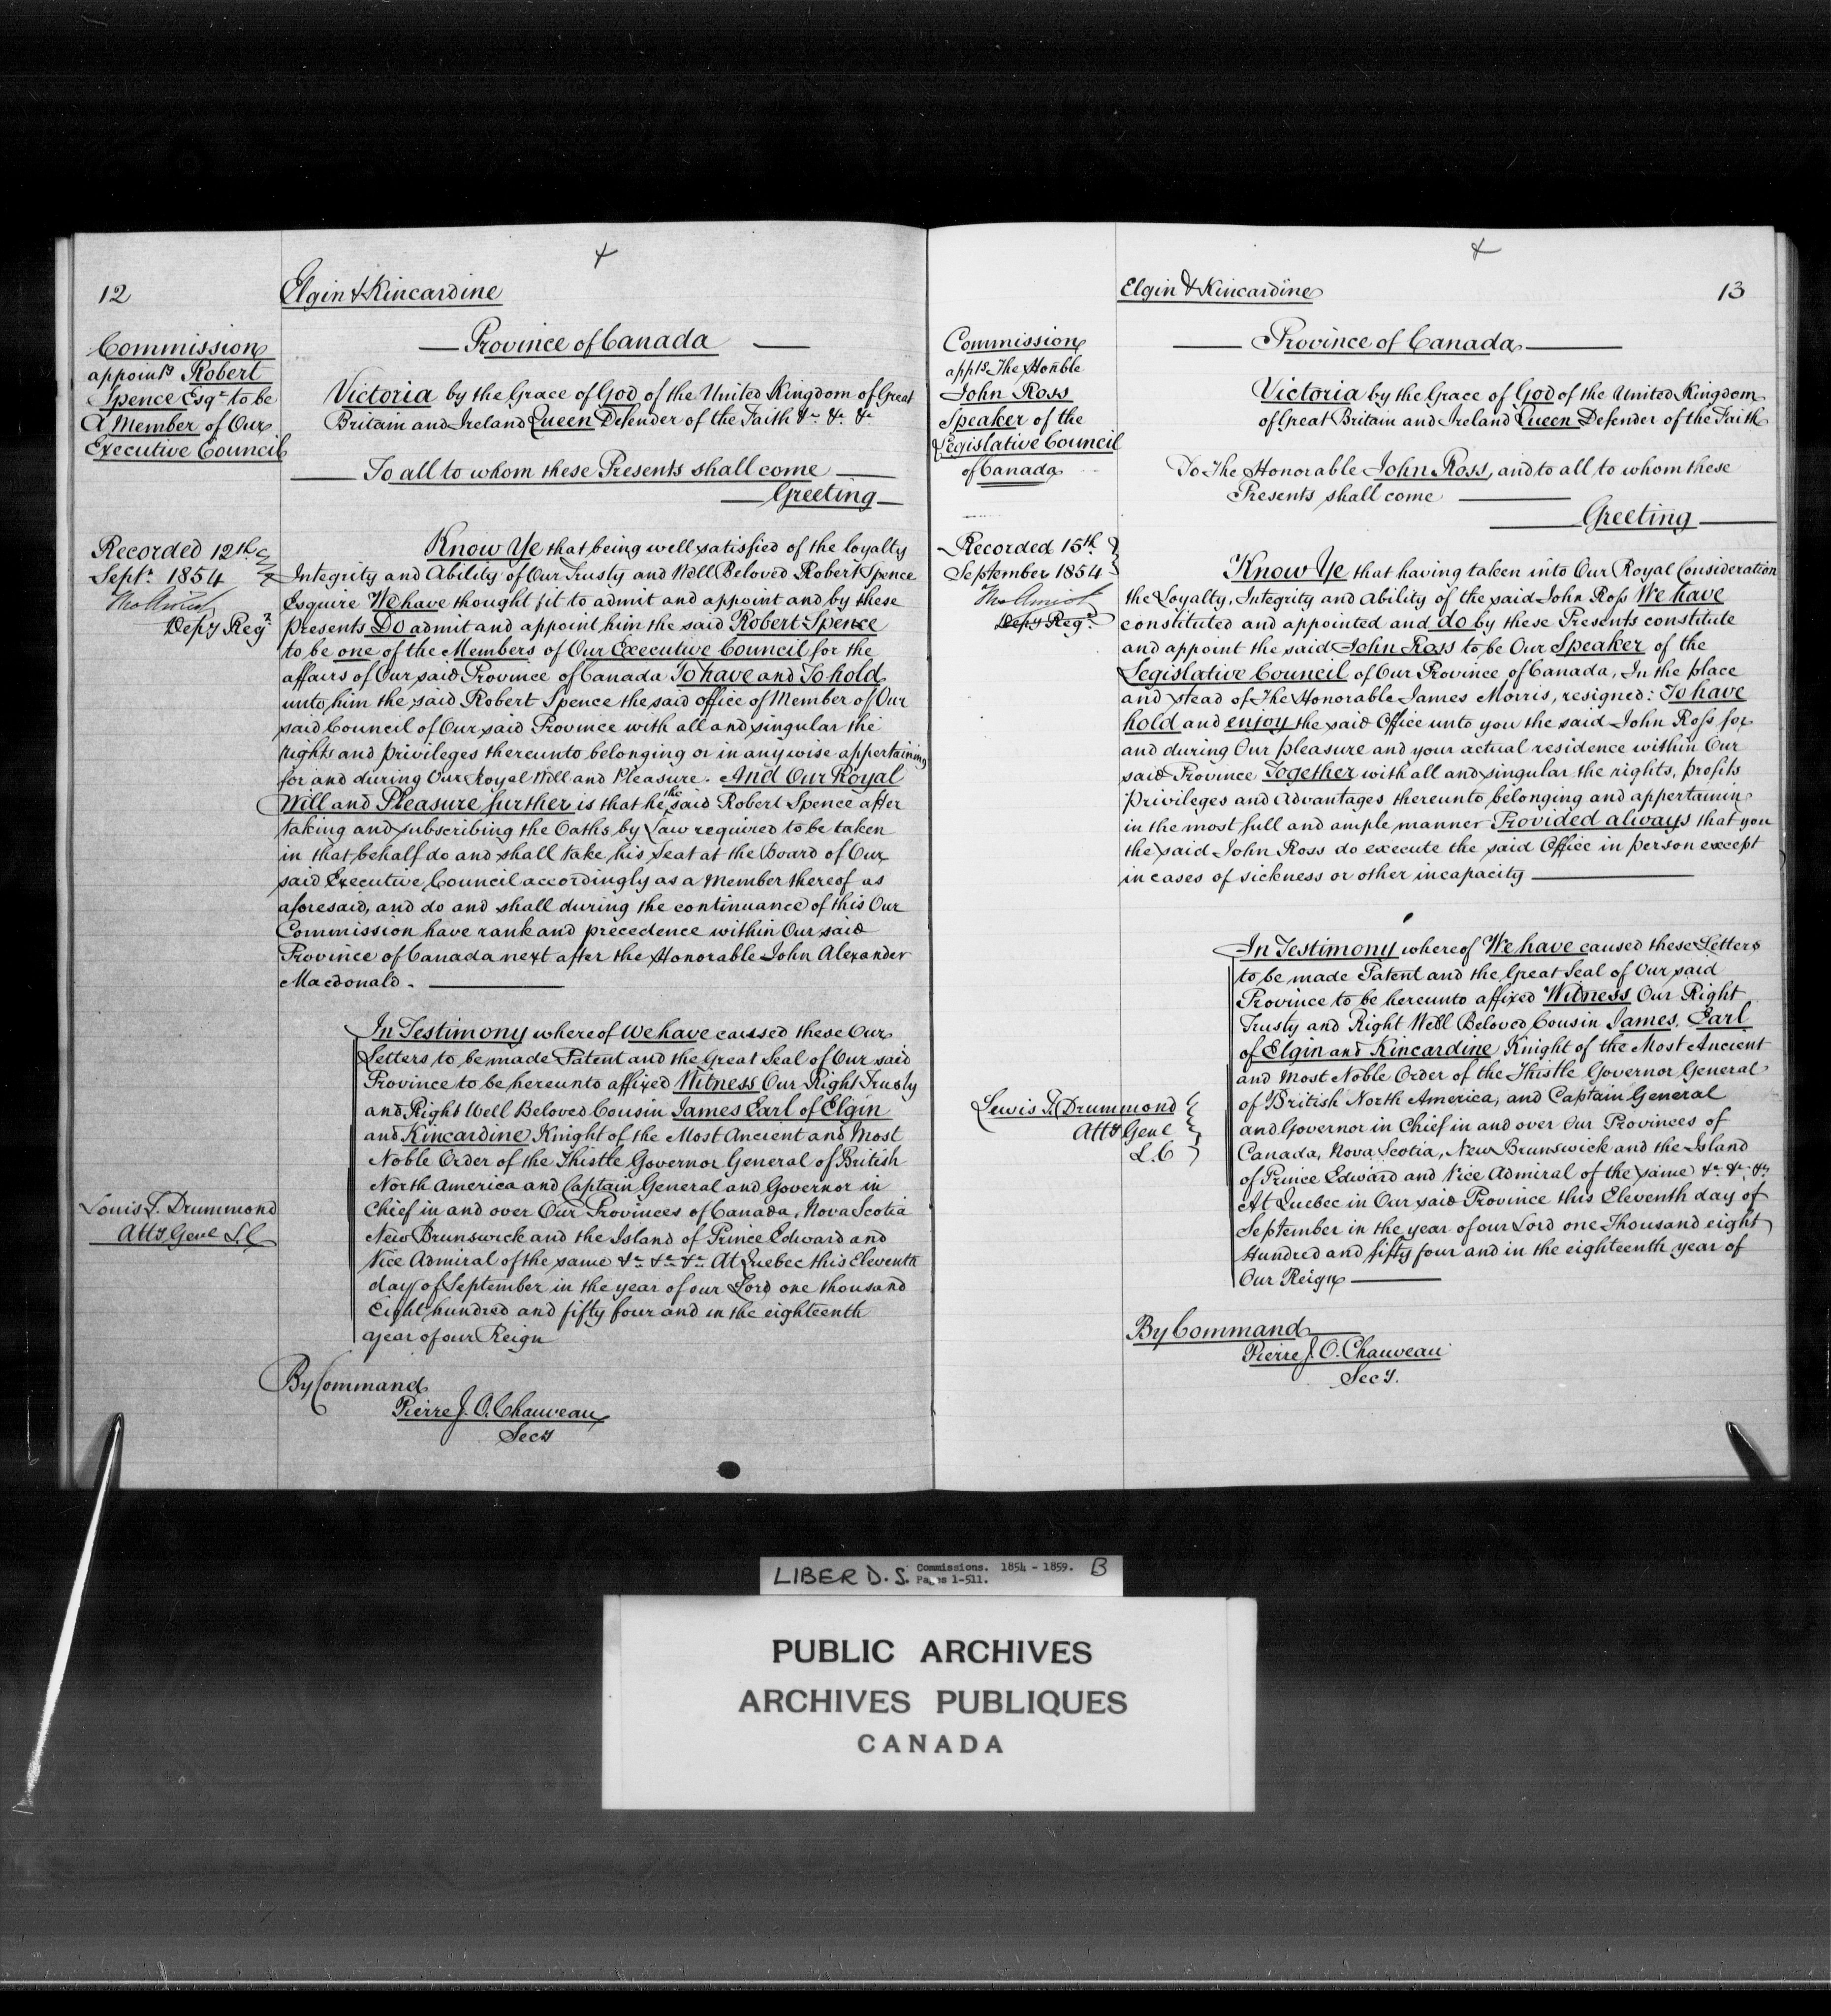 12
Elgin & Kincardine
Commission
appointg Robert
Spence Esqr to be
A Member of Our
Executive Council
Province of Canada
Victoria by the Grace of God of the United Kingdom of Great
Britain and Ireland Queen Defender of the Faith &c &c &c
To all to whom these Presents shall come
Greeting
Recorded 12th
Septr 1854
Tho Amiot
Depy Regr
Know Ye that being well satisfied of the loyalty
Integrity and Ability of Our Trusty and Well Beloved Robert Spence
Esquire We have thought fit to admit and appoint and by these
presents Do admit and appoint him the said Robert Spence
to be one of the Members of Our Executive Council for the
affairs of Our said Province of Canada To have and To hold
unto him the said Robert Spence the said office of Member of Our
said Council of Our said Province with all and singular the
rights and privileges thereunto belonging or in anywise appertaining
for and during Our Royal Will and Pleasure. And Our Royal
Will and Pleasure further is that he the said Robert Spence after
taking and subscribing the Oaths by Law required to be taken
in that behalf do and shall take his Seat at the Board of Our
said Executive Council accordingly as a Member thereof as
aforesaid, and do and shall during the continuance of this Our
Commission have rank and precedence within Our said
Province of Canada next after the Honorable John Alexander
Macdonald.
In Testimony whereof We have caused these Our
Letters to be made Patent and the Great Seal of Our said
Province to be hereunto affixed Witness Our Right Trusty
and Right Well Beloved Cousin James Earl of Elgin
and Kincardine Knight of the Most Ancient and Most
Noble Order of the Thistle Governor General of British
North America and Captain General and Governor in
Chief in and over Our Provinces of Canada, Nova Scotia
New Brunswick and the Island of Prince Edward and
Vice Admiral of the same &c &c &c At Quebec this Eleventh
day of September in the year of our Lord one thousand
Eight hundred and fifty four and in the eighteenth
year of our Reign
Louis T. Drummond
Atty Genl L.C
By Command
Pierre J. O. Chauveau
Secy
Elgin & Kincardine
13
Commission
appts The Honble
John Ross
Speaker of the
Legislative Council
of Canada
Province of Canada
Victoria by the Grace of God of the United Kingdom
of Great Britain and Ireland Queen Defender of the Faith
To The Honorable John Ross, and to all to whom these
Presents shall come
Greeting
Recorded 15th
September 1854
Tho Amiot
Depy Regr
Know Ye that having taken into Our Royal Consideration
the Loyalty, Integrity and Ability of the said John Ross We have
constituted and appointed and do by these Presents constitute
and appoint the said John Ross to be Our Speaker of the
Legislative Council of Our Province of Canada, In the place
and stead of The Honorable James Morris, resigned: To have
hold and enjoy the said Office unto you the said John Ross for
and during Our pleasure and your actual residence within Our
said Province Together with all and singular the rights, profits
Privileges and Advantages thereunto belonging and appertaining
in the most full and ample manner Provided always that you
the said John Ross do execute the said Office in person except
in cases of sickness or other incapacity
In Testimony whereof We have caused these Letters
to be made Patent and the Great Seal of Our said
Province to be hereunto affixed Witness Our Right
Trusty and Right Well Beloved Cousin James, Earl
of Elgin and Kincardine Knight of the Most Ancient
and Most Noble Order of the Thistle Governor General
of British North America, and Captain General
and Governor in Chief in and over Our Provinces of
Canada, Nova Scotia, New Brunswick and the Island
of Prince Edward and Vice Admiral of the same &c &c &c
At Quebec in Our said Province this Eleventh day of
September in the year of our Lord one Thousand eight
Hundred and fifty four and in the eighteenth year of
Our Reign
Lewis T. Drummond
Atty Genl
L.C
By Command
Pierre J. O. Chauveau
Secy.
LIBER D. S. Commissions. 1854 - 1859. B
Pages 1-511.
PUBLIC ARCHIVES
ARCHIVES PUBLIQUES
CANADA